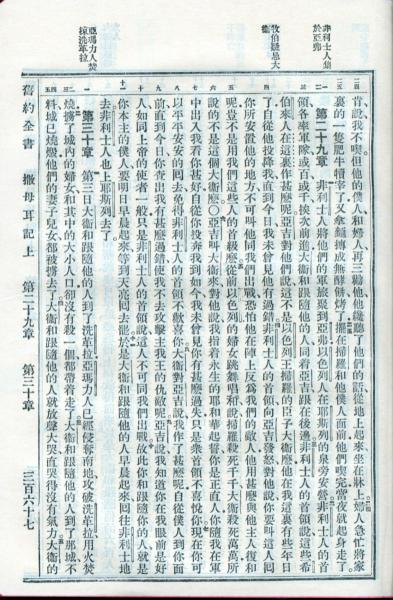 非利士人集於亞弗
牧伯疑忌大衛
亞瑪力人焚掠洗革拉
肯說我不喫但他的僕人和婦人再三勸他他纔聽了他們的話從地上起來坐在牀上婦人急忙將家
裏的一隻肥牛犢宰了又拿麵摶成無酵餅烤了擺在掃羅和他僕人面前他們喫完當夜就起身走了
第二十九章 非利士人將他們的軍旅聚到亞弗以色列人在耶斯列的泉旁安營非利士人的首
領各率軍隊或百或千挨次前進大衛和跟隨他的人同着亞吉跟在後邊非利士人的首領說這些希
伯來人在這裏作甚麼呢亞吉對他們說這不是以色列王掃羅的臣子大衛麼他在我這裏有些年日
了自從他投降我直到今日我未曾見他有過錯非利士人的首領向亞吉發怒對他說你要叫這人囘
你所安置他的地方不可叫他同我們出戰恐怕他在陣上反爲我們的敵人他用甚麼與他主人復和
呢豈不是用我們這些人的首級麼從前以色列的婦女跳舞唱和說掃羅殺死千千大衛殺死萬萬所
說的不是這個大衛麼○亞吉叫大衛來對他說我指着永生的耶和華起誓你是正直人你隨我在軍
中出入我看你甚好自從你投奔我到如今我未曾見你有甚麼過失只是衆首領不喜悅你現在你可
以平平安安的囘去免得非利士人的首領不歡喜你大衛對亞吉說我作了甚麼呢自從僕人到你面
前直到今日你查出我有甚麼過錯使我不去攻擊主我王的仇敵呢亞吉說我知道你在我眼前是好
人如同上帝的使者一般只是非利士人的首領說這人不可同我們出戰故此你和跟隨你的人就是
你本主的僕人要明日早晨起來等到天亮囘去罷於是大衛和跟隨他的人早晨起來囘往非利士地
去非利士人也上耶斯列去了
第三十章 第三日大衛和跟隨他的人到了洗革拉亞瑪力人已經侵奪南地攻破洗革拉用火焚
燒擄了城內的婦女和其中的大小人口卻沒有殺一個都帶着走了大衛和跟隨他的人到了那城不
料城已燒燬他們的妻子兒女都被擄去了大衛和跟隨他的人就放聲大哭直哭得沒有氣力大衛的
舊約全書 撒母耳記上 第二十九章 第三十章 三百六十七